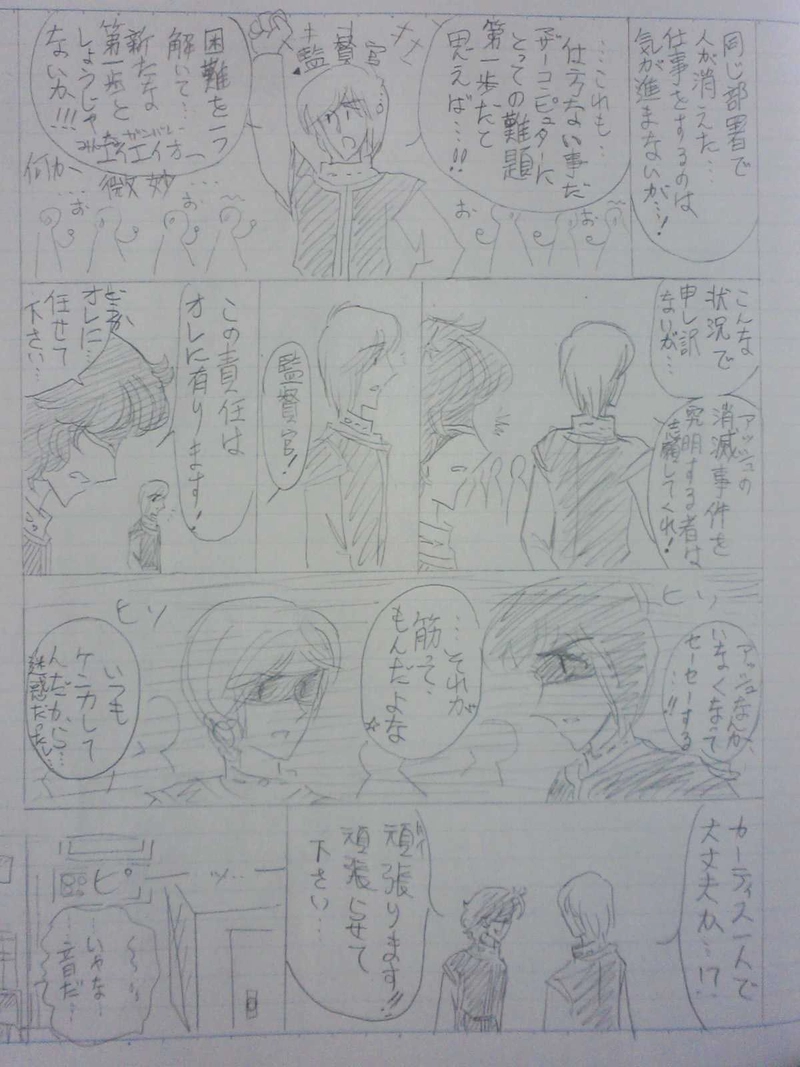 同じ部署で
人が消えた…
仕事をするのは
気が進まないが…!
…これも…
仕方ない事だ
マザーコンピュターに
とっての難題
第一歩だと
思えば…!!
監督官
困難を一つ
解いて…
新たな
第一歩と
しようじゃ
ないか!!!
みんなガンバレ
エイエイオー
微妙…
何か…
お
お
お
お
こんな
状況で
申し訳
ないが…
アッシュの
消滅事件を
究明する者は
志願してくれ!
監督官!
この責任は
オレに有ります!
どうか
オレに…
任せて
下さい…
ヒソ
アッシュなんか
いなくなって
セーセーする
…!!
…それが
筋って
もんだよな
ヒソ
いつも
ケンカして
んだから…
迷惑だったし…
カーティス一人で
大丈夫か…!?
頑張ります!!
頑張らせて
下さい…
ツー…
ピ
…いやな…
音だ…